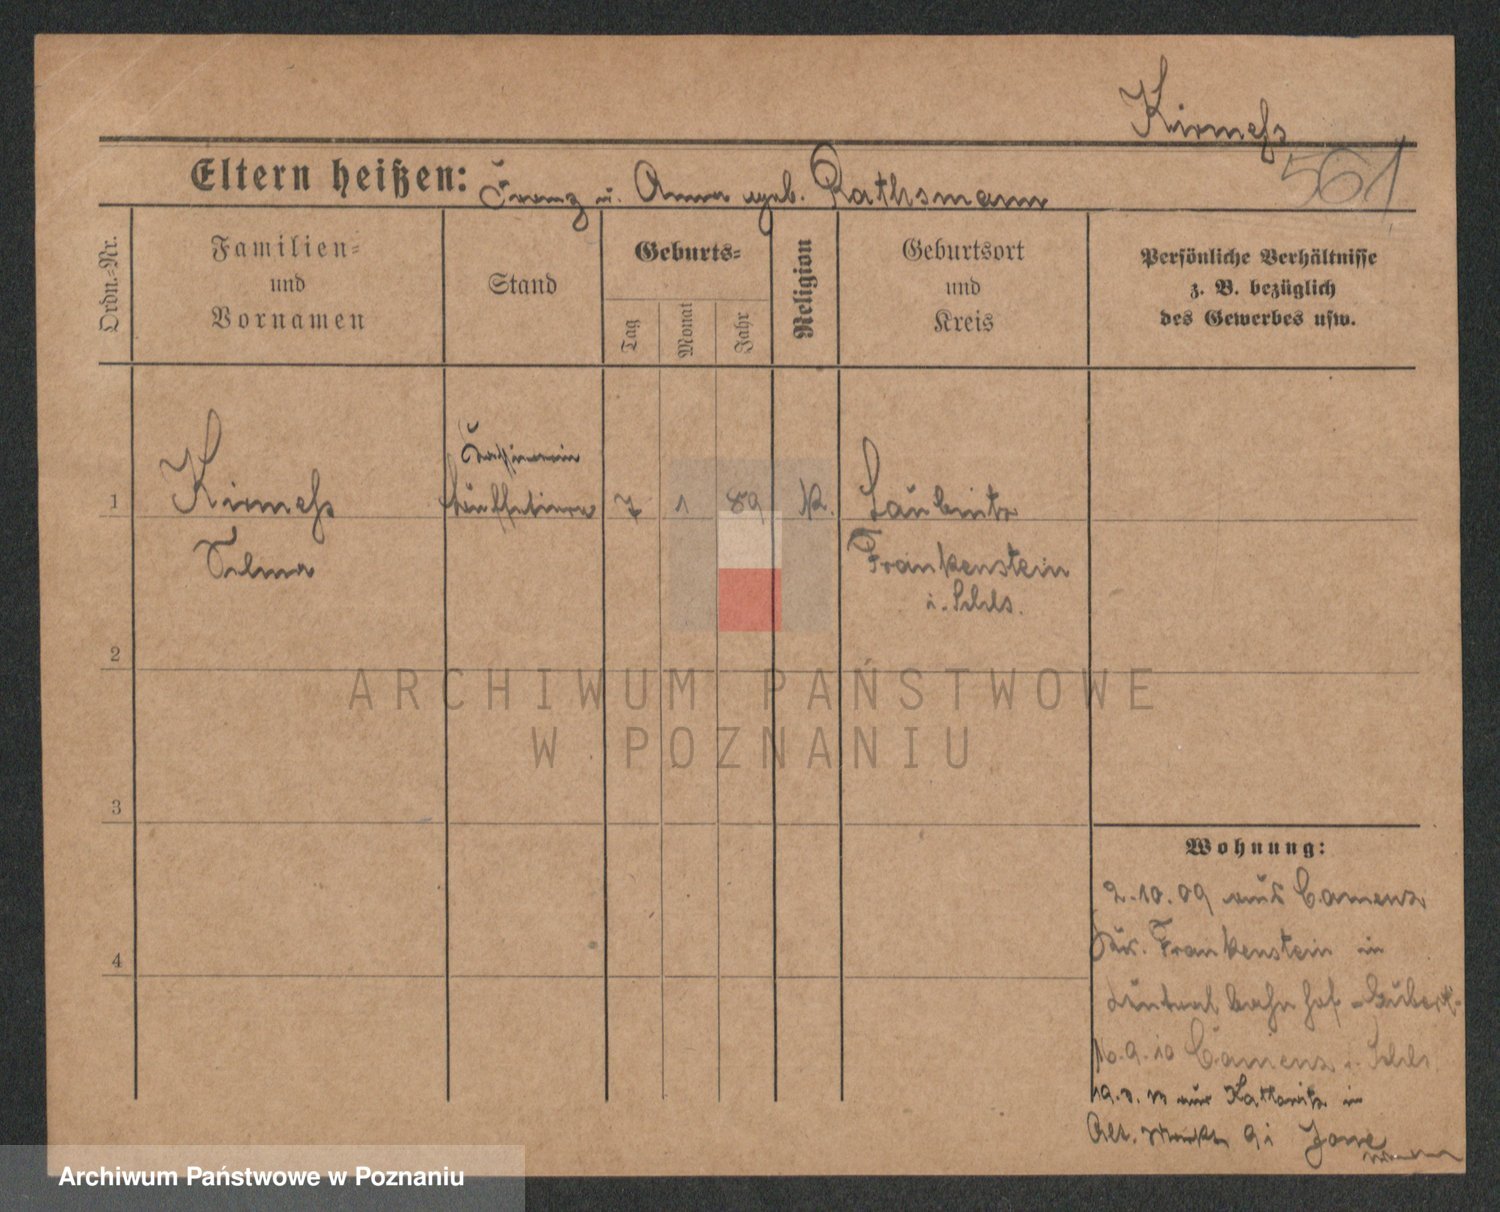 Kirmeß
561
Eltern heißen: Franz u. Anna geb. Rathsmann
Ordn.-Nr.
Familien-
und
Vornamen
Stand
Geburts-
Tag
Monat
Jahr
Religion
Geburtsort
und
Kreis
Persönliche Verhältnisse
z. B. bezüglich
des Gewerbes usw.
1
Kirmeß
7 1 89 K.
Laubnitz
Selma
Frankenstein
i. Schls.
2
ARCHIWUM PAŃSTWOWE
W POZNANIU
3
Wohnung:
2.10.09 aus Camenz
Frankenstein in
4
Zentralbahnhof
16.9.10 Camenz i. Schls.
aus Kattowitz in
Alt. Markt 9 i
Archiwum Państwowe w Poznaniu